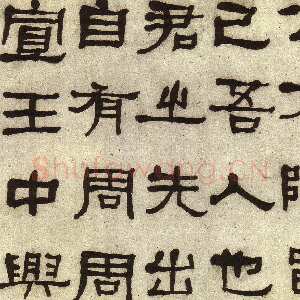 己吾人也
君之先出
自有周周
宣王中興
Shufawang.CN